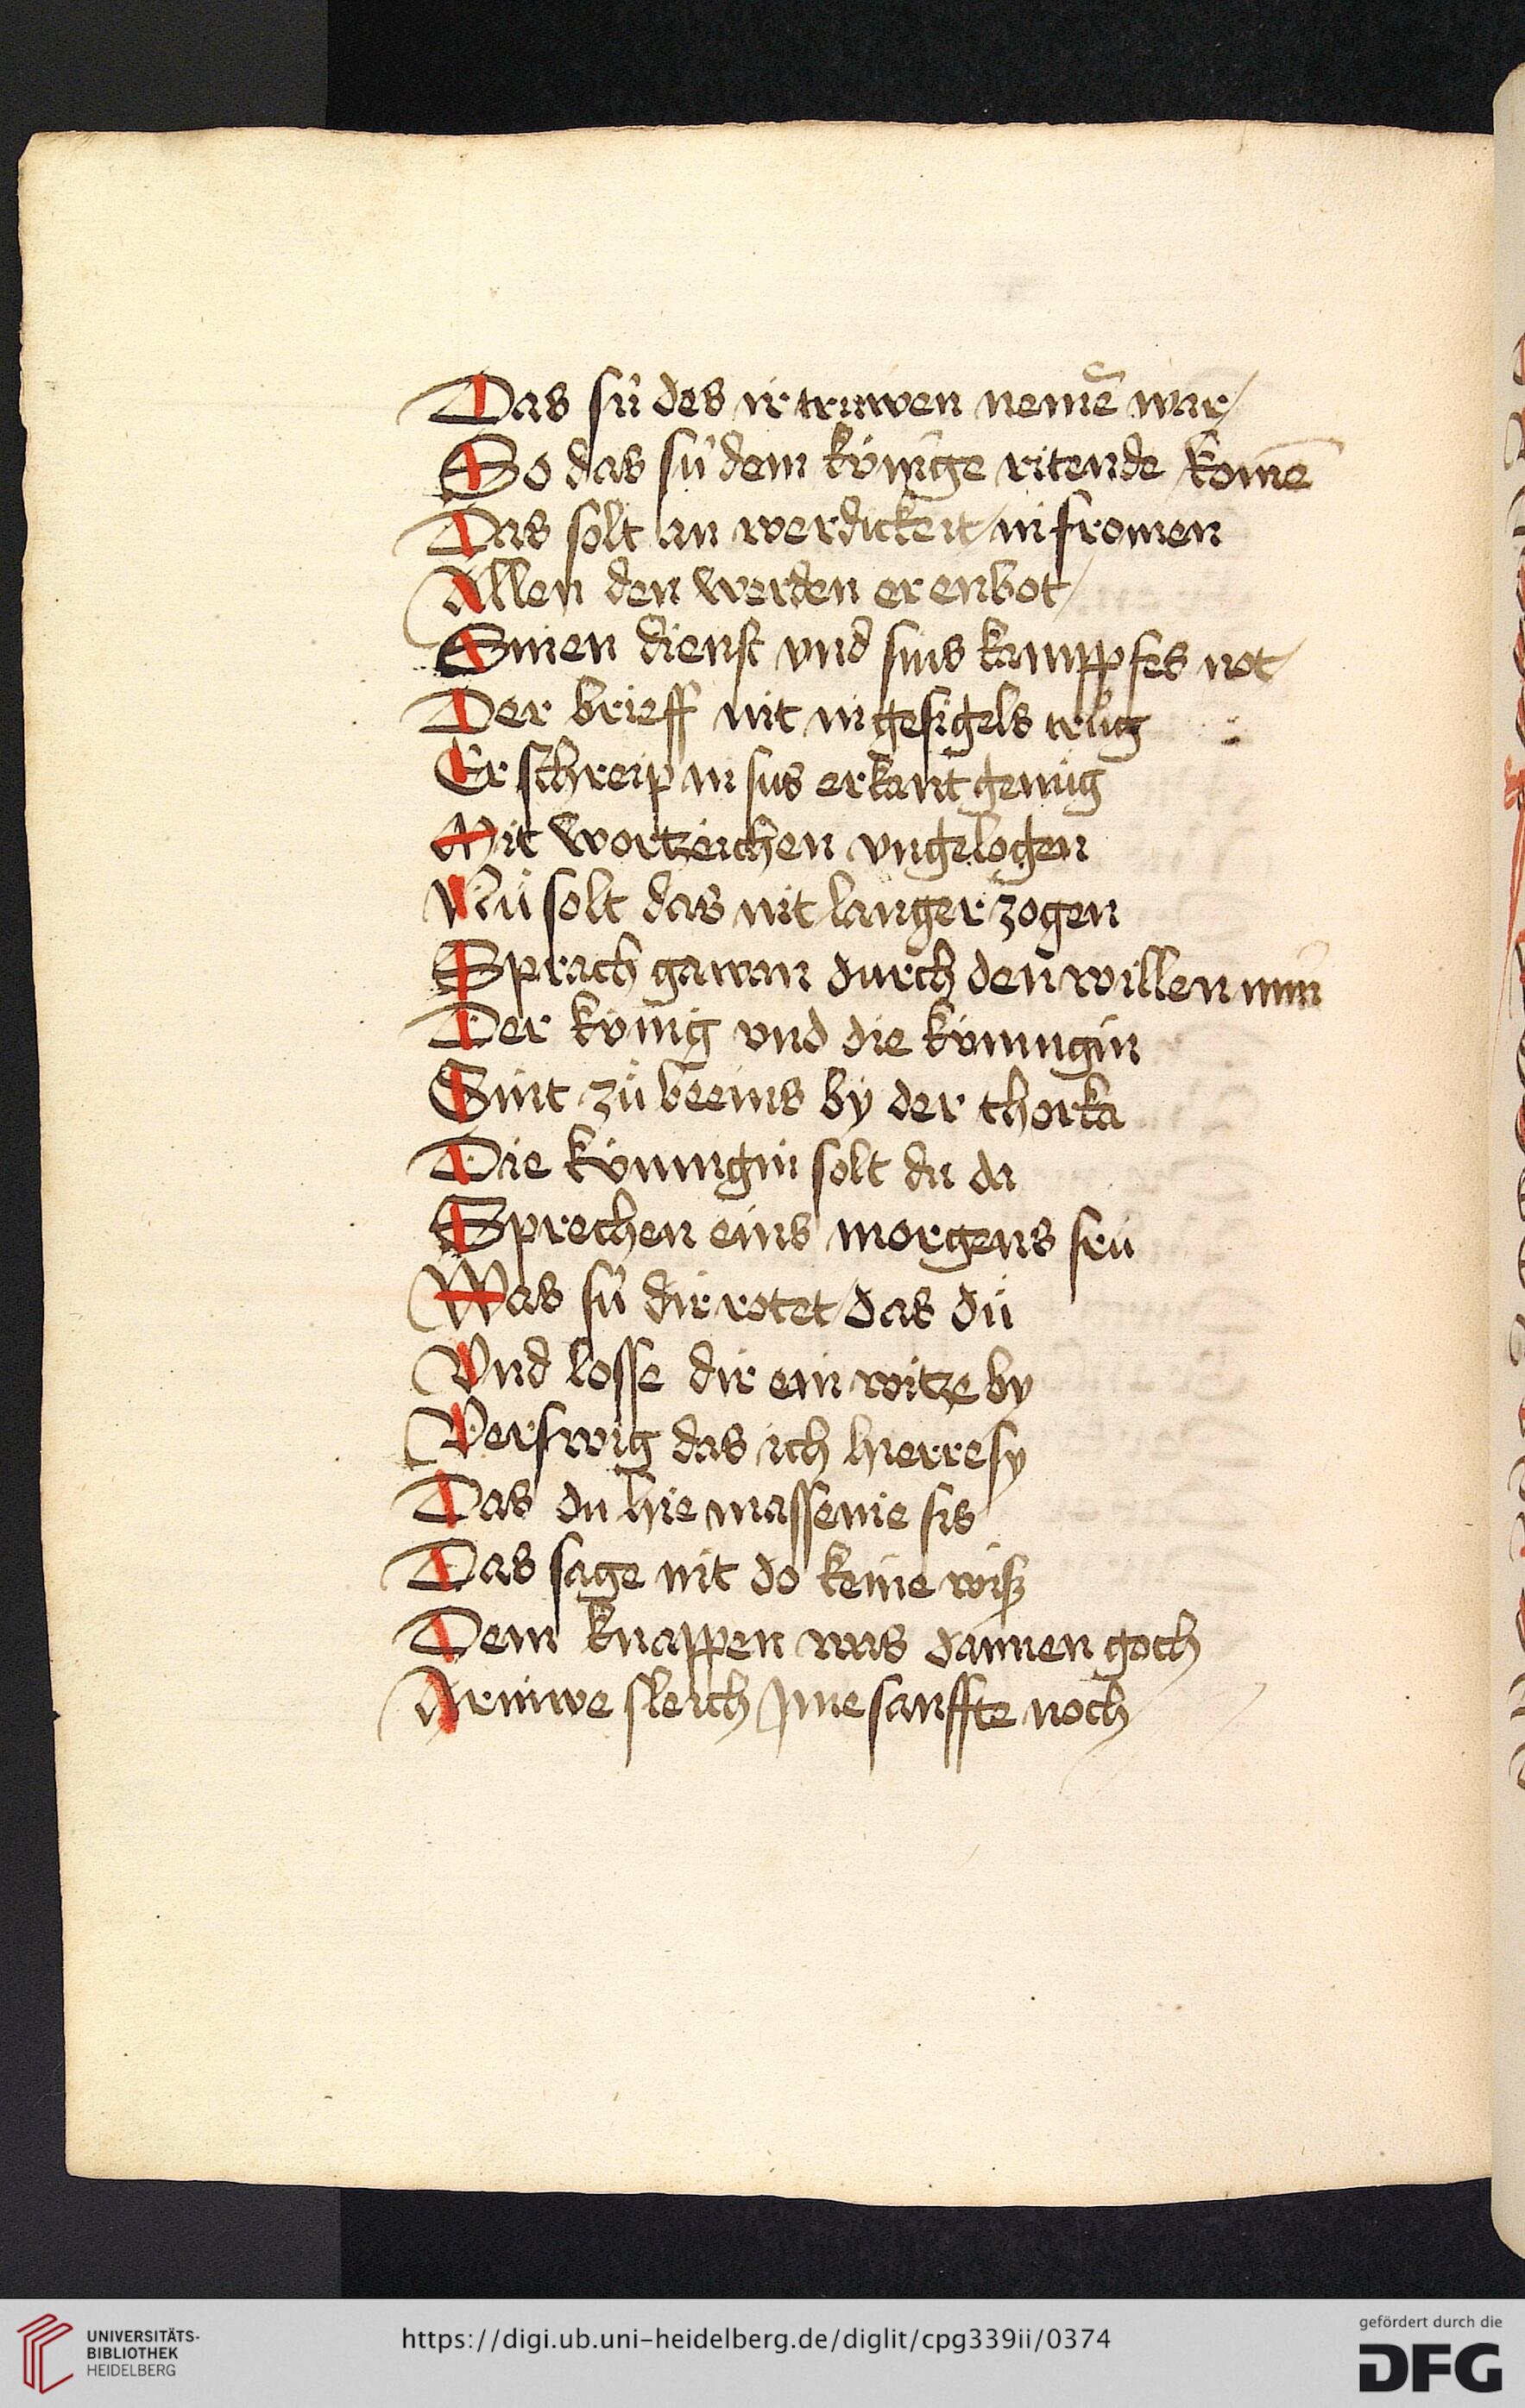 Das sú des ir truwen nemē war/
So das sú dem kúnige ritende komē
Das solt an werdickeit in fromen
Allen den werden er enbot/
Sinen dienst vnd sins kamppfes not/
Der brieff nit ingesigels trůg
Er schreip in sus erkant genůg
Mit wortzeichen vngelogen
Nů solt das nit langer zogen
Sprach gawan durch den willen min
Der kúnig vnd die kúnnigin
Sint zů beems by der thorka
Die kúnnigin solt du da
Sprechen eins morgens frů
Was sú dir rotet das dů
Vnd losse dir ein witze by
Verswig das ich hie rre sy
Das du hie massenie sis
Das sage nit do keine wiß
Dem knappen was dannen goch
Arniwe sleich jme sanffte noch
UNIVERSITÄTS-
BIBLIOTHEK
HEIDELBERG
https://digi.ub.uni-heidelberg.de/diglit/cpg339ii/0374
gefördert durch die
DFG